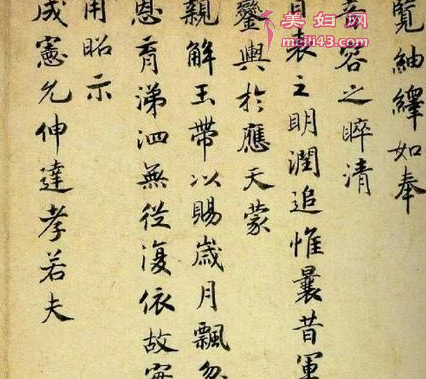 美妇网
覽紬繹如奉
容之睟清
表之明潤追惟曩昔軍
鑾輿於應天蒙
親解玉帶以賜歲月飄忽
恩育涕泗無從復依故
用昭示
成憲允伸達孝若夫